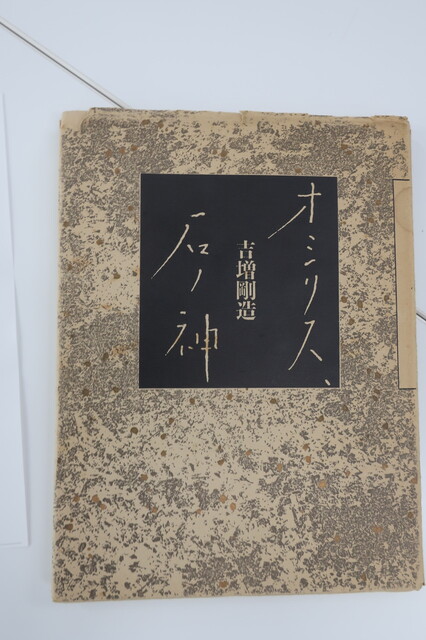 オシリス、
石ノ神
吉増剛造